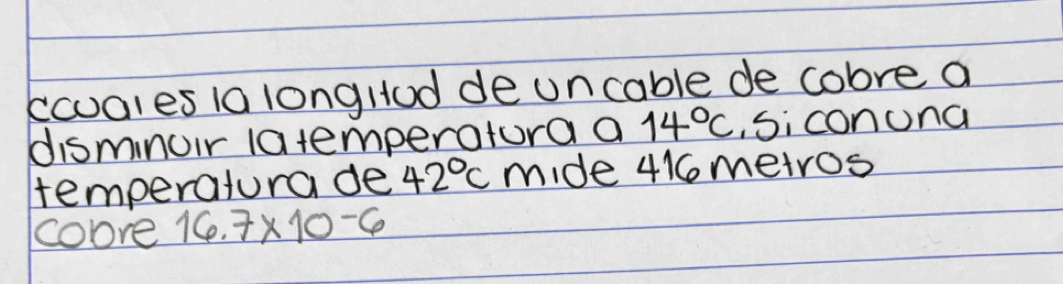 ¿cual es la longitud de un cable de cobre a
disminuir la temperatura a 14°C, si con una
temperatura de 42°C mide 416 metros
cobre 16.7x10-6